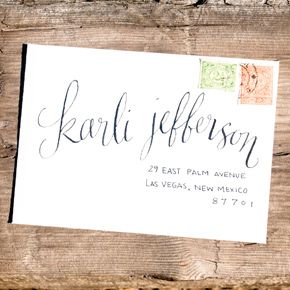 karli jefferson
29 EAST PALM AVENUE
LAS VEGAS, NEW MEXICO
87701